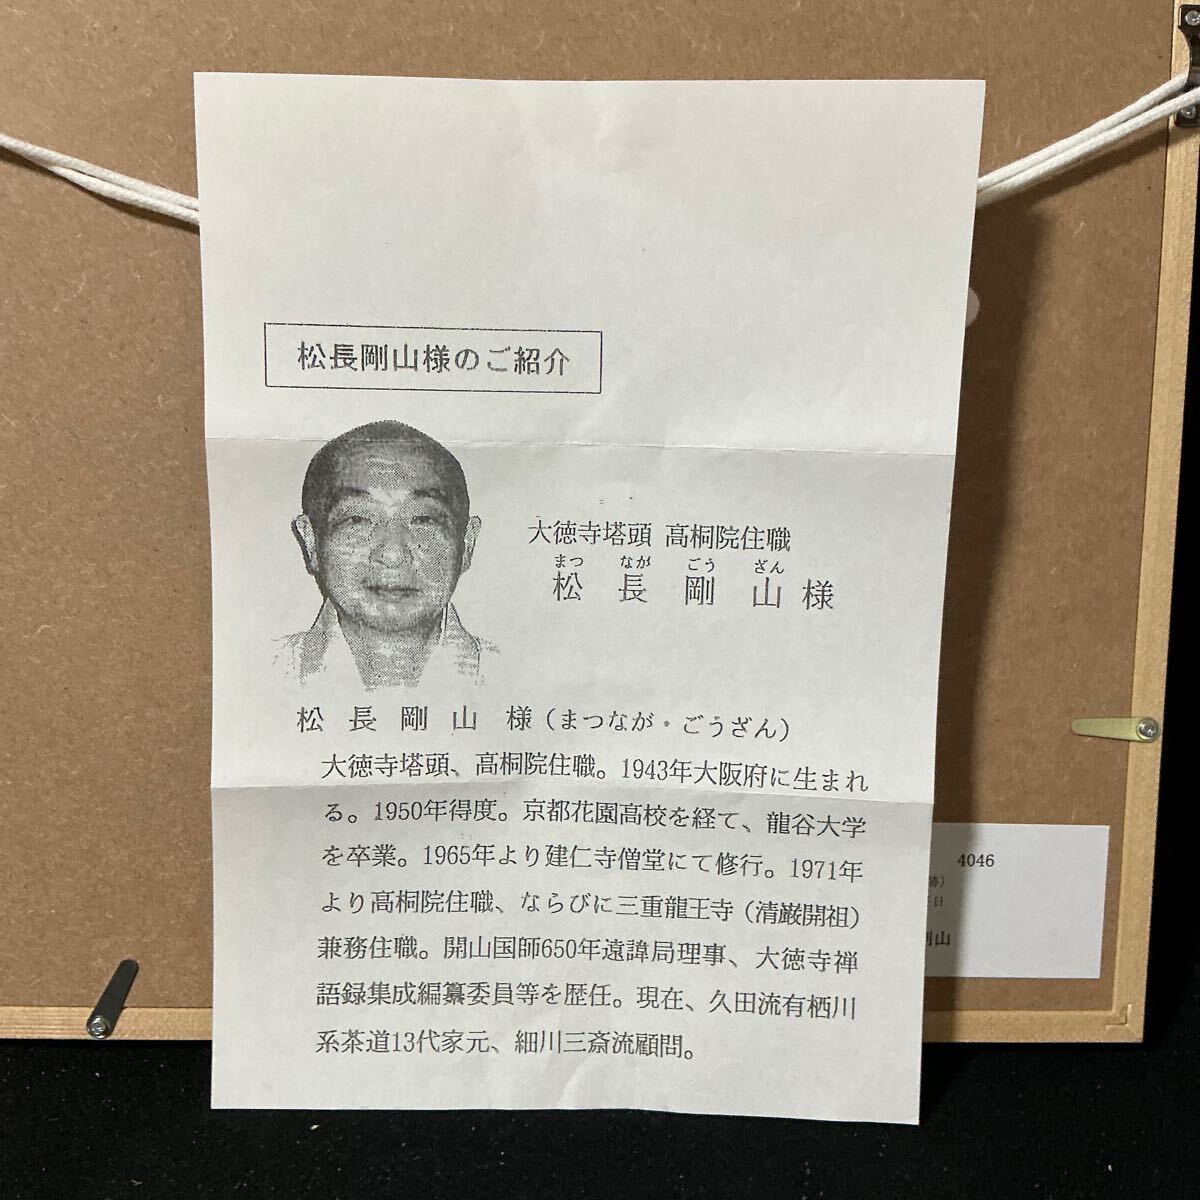 松長剛山様のご紹介
大徳寺塔頭 高桐院住職
まつ なが ごう ざん
松 長 剛 山 様
松 長 剛 山 様（まつなが・ごうざん）
大徳寺塔頭、高桐院住職。1943年大阪府に生まれ
る。1950年得度。京都花園高校を経て、龍谷大学
を卒業。1965年より建仁寺僧堂にて修行。1971年
より高桐院住職、ならびに三重龍王寺（清巌開祖）
兼務住職。開山国師650年遠諱局理事、大徳寺禅
語録集成編纂委員等を歴任。現在、久田流有栖川
系茶道13代家元、細川三斎流顧問。
4046
跡）
日
剛山